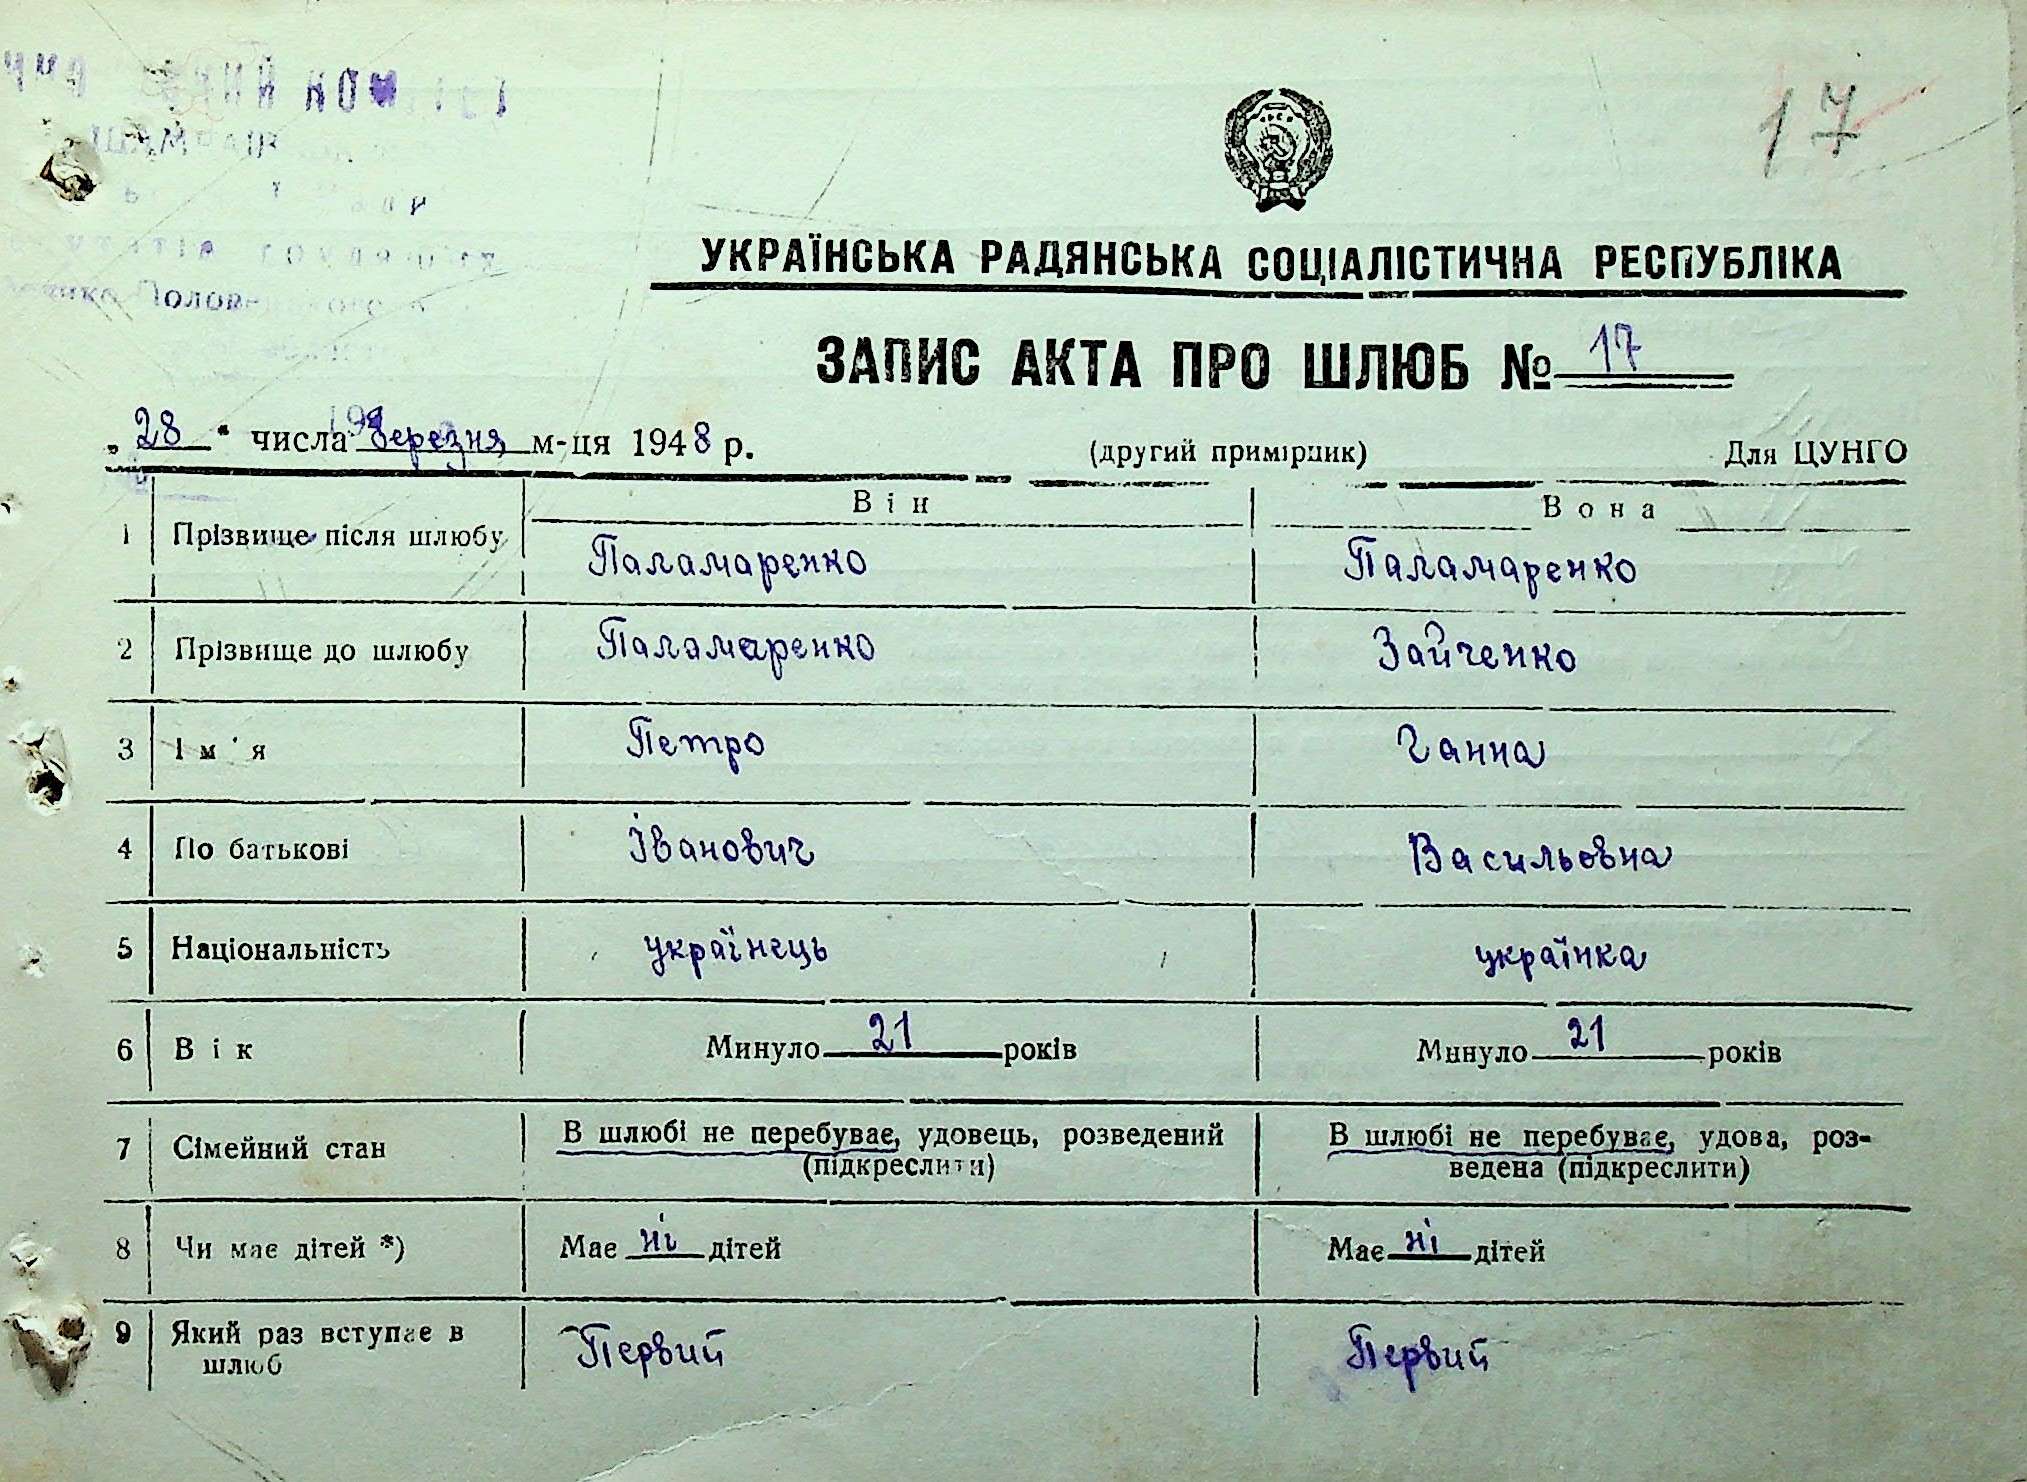 17
УКРАЇНСЬКА РАДЯНСЬКА СОЦІАЛІСТИЧНА РЕСПУБЛІКА
ЗАПИС АКТА ПРО ШЛЮБ № 17
„28“ числа березня м-ця 1948 р. (другий примірник) Для ЦУНГО
Він Вона
1 Прізвище після шлюбу Паламаренко Паламаренко
2 Прізвище до шлюбу Паламаренко Зайченко
3 Ім'я Петро Ганна
4 По батькові Іванович Васильовна
5 Національність українець українка
6 Вік Минуло 21 років Минуло 21 років
7 Сімейний стан В шлюбі не перебуває, удовець, розведений В шлюбі не перебуває, удова, роз-
(підкреслити) ведена (підкреслити)
8 Чи має дітей *) Має ні дітей Має ні дітей
9 Який раз вступає в Первий Первий
шлюб